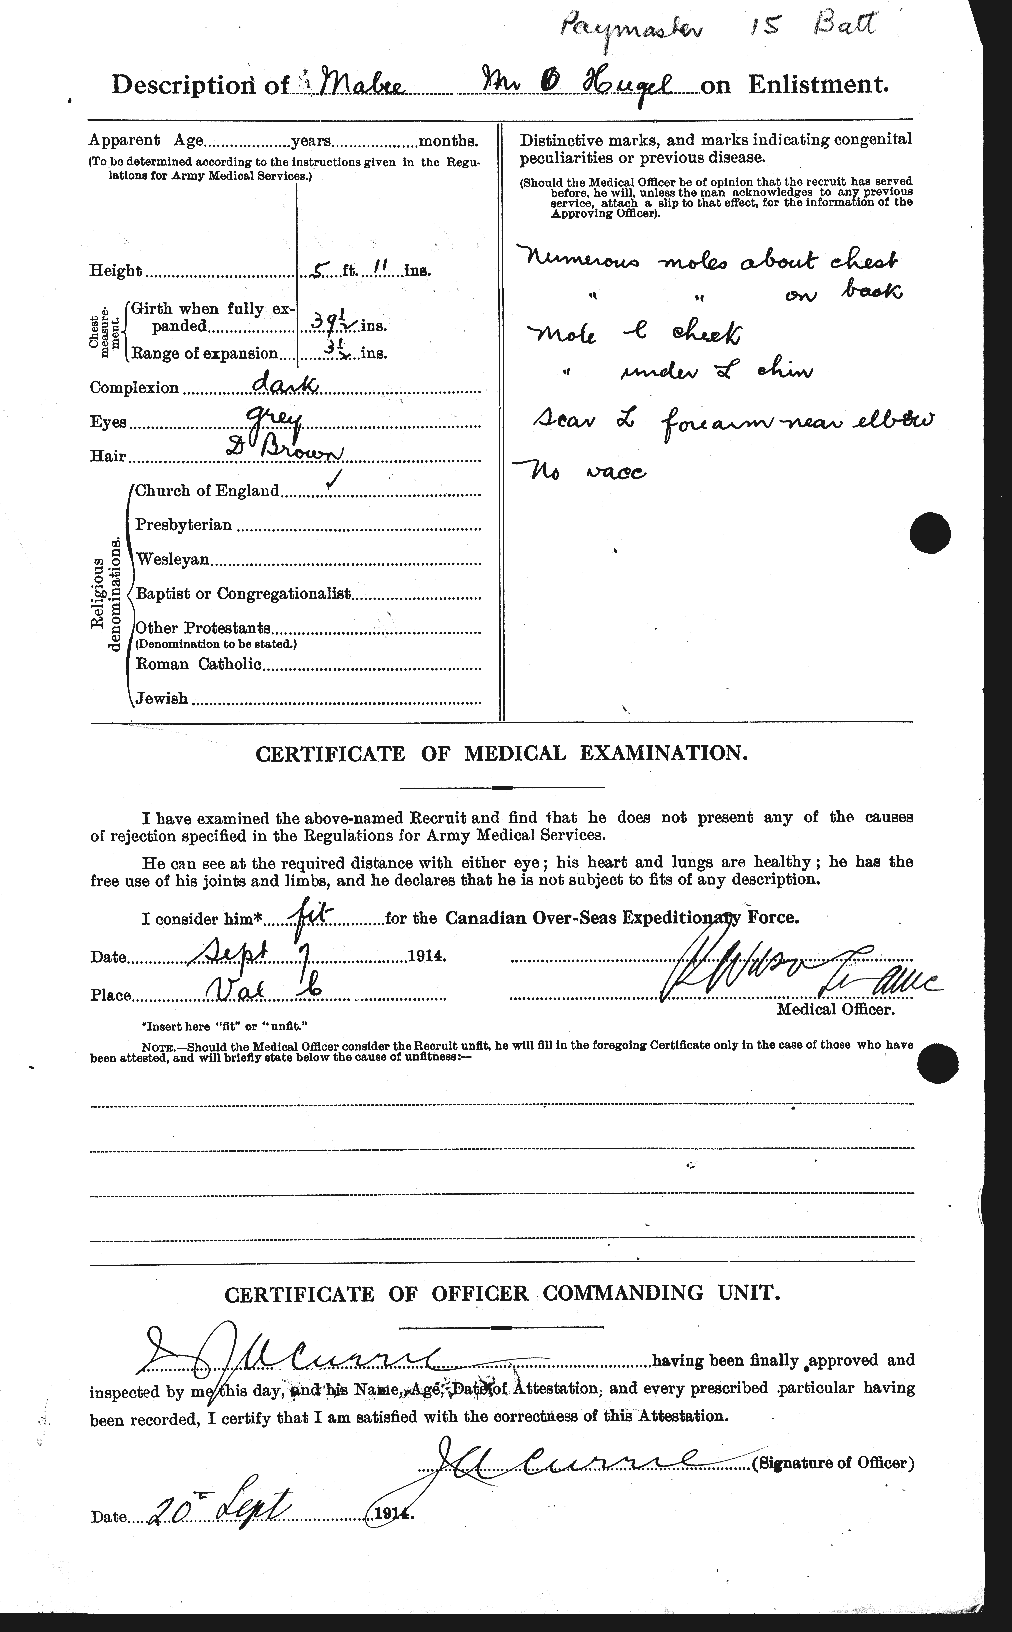 Paymaster 15 Batt
Description of Mabee Mr O Hugel on Enlistment.
Apparent Age....................years....................months.
(To be determined according to the instructions given in the Regu-
lations for Army Medical Services.)
Height 5 ft. 11 ins.
Chest measure-ment.
Girth when fully ex-
panded 39½ ins.
Range of expansion 3½ ins.
Complexion dark
Eyes grey
Hair D Brown
Religious denominations.
Church of England ✓
Presbyterian
Wesleyan
Baptist or Congregationalist
Other Protestants
(Denomination to be stated.)
Roman Catholic
Jewish
Distinctive marks, and marks indicating congenital
peculiarities or previous disease.
(Should the Medical Officer be of opinion that the recruit has served
before, he will, unless the man acknowledges to any previous
service, attach a slip to that effect, for the information of the
Approving Officer).
Numerous moles about chest
" " on back
Mole L cheek
" under L chin
Scar L forearm near elbow
No vacc
CERTIFICATE OF MEDICAL EXAMINATION.
I have examined the above-named Recruit and find that he does not present any of the causes
of rejection specified in the Regulations for Army Medical Services.
He can see at the required distance with either eye; his heart and lungs are healthy; he has the
free use of his joints and limbs, and he declares that he is not subject to fits of any description.
I consider him* fit for the Canadian Over-Seas Expeditionary Force.
Date Sept 7 1914.
Place Val C
Medical Officer.
*Insert here "fit" or "unfit."
NOTE.—Should the Medical Officer consider the Recruit unfit, he will fill in the foregoing Certificate only in the case of those who have
been attested, and will briefly state below the cause of unfitness:—
CERTIFICATE OF OFFICER COMMANDING UNIT.
J A Currie having been finally approved and
inspected by me this day, and his Name, Age, Date of Attestation, and every prescribed particular having
been recorded, I certify that I am satisfied with the correctness of this Attestation.
J A Currie (Signature of Officer)
Date 20th Sept 1914.